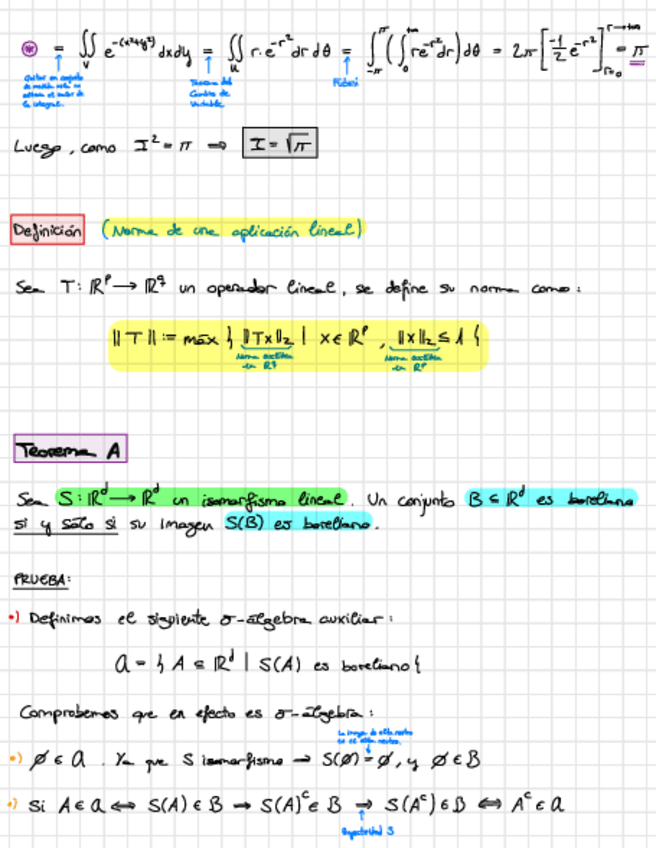 ⊛ = ∬_V e^{-(x²+y²)} dx dy = ∬_U r·e^{-r²} dr dθ = ∫_{-π}^{π} (∫_0^{+∞} r e^{-r²} dr) dθ = 2π [-1/2 e^{-r²}]_{r=0}^{r→+∞} = π
Quitar un conjunto de medida nula no altera el valor de la integral.
Teorema del Cambio de Variable
Fubini
Luego, como I² = π ⇒ I = √π
Definición (Norma de una aplicación lineal)
Sea T: ℝᵖ → ℝ^q un operador lineal, se define su norma como:
||T|| := máx { ||Tx||₂ | x ∈ ℝᵖ, ||x||₂ ≤ 1 }
Norma euclídea en ℝ^q
Norma euclídea en ℝᵖ
Teorema A
Sea S: ℝᵈ → ℝᵈ un isomorfismo lineal. Un conjunto B ⊆ ℝᵈ es boreliano
si y sólo si su imagen S(B) es boreliano.
PRUEBA:
•) Definimos el siguiente σ-álgebra auxiliar:
a = { A ⊆ ℝᵈ | S(A) es boreliano }
Comprobemos que en efecto es σ-álgebra:
La imagen de
•) ∅ ∈ a. Ya que S isomorfismo → S(∅) = ∅, y ∅ ∈ B
•) Si A ∈ a ⟺ S(A) ∈ B → S(A)ᶜ ∈ B → S(Aᶜ) ∈ B ⟺ Aᶜ ∈ a
Biyectividad S